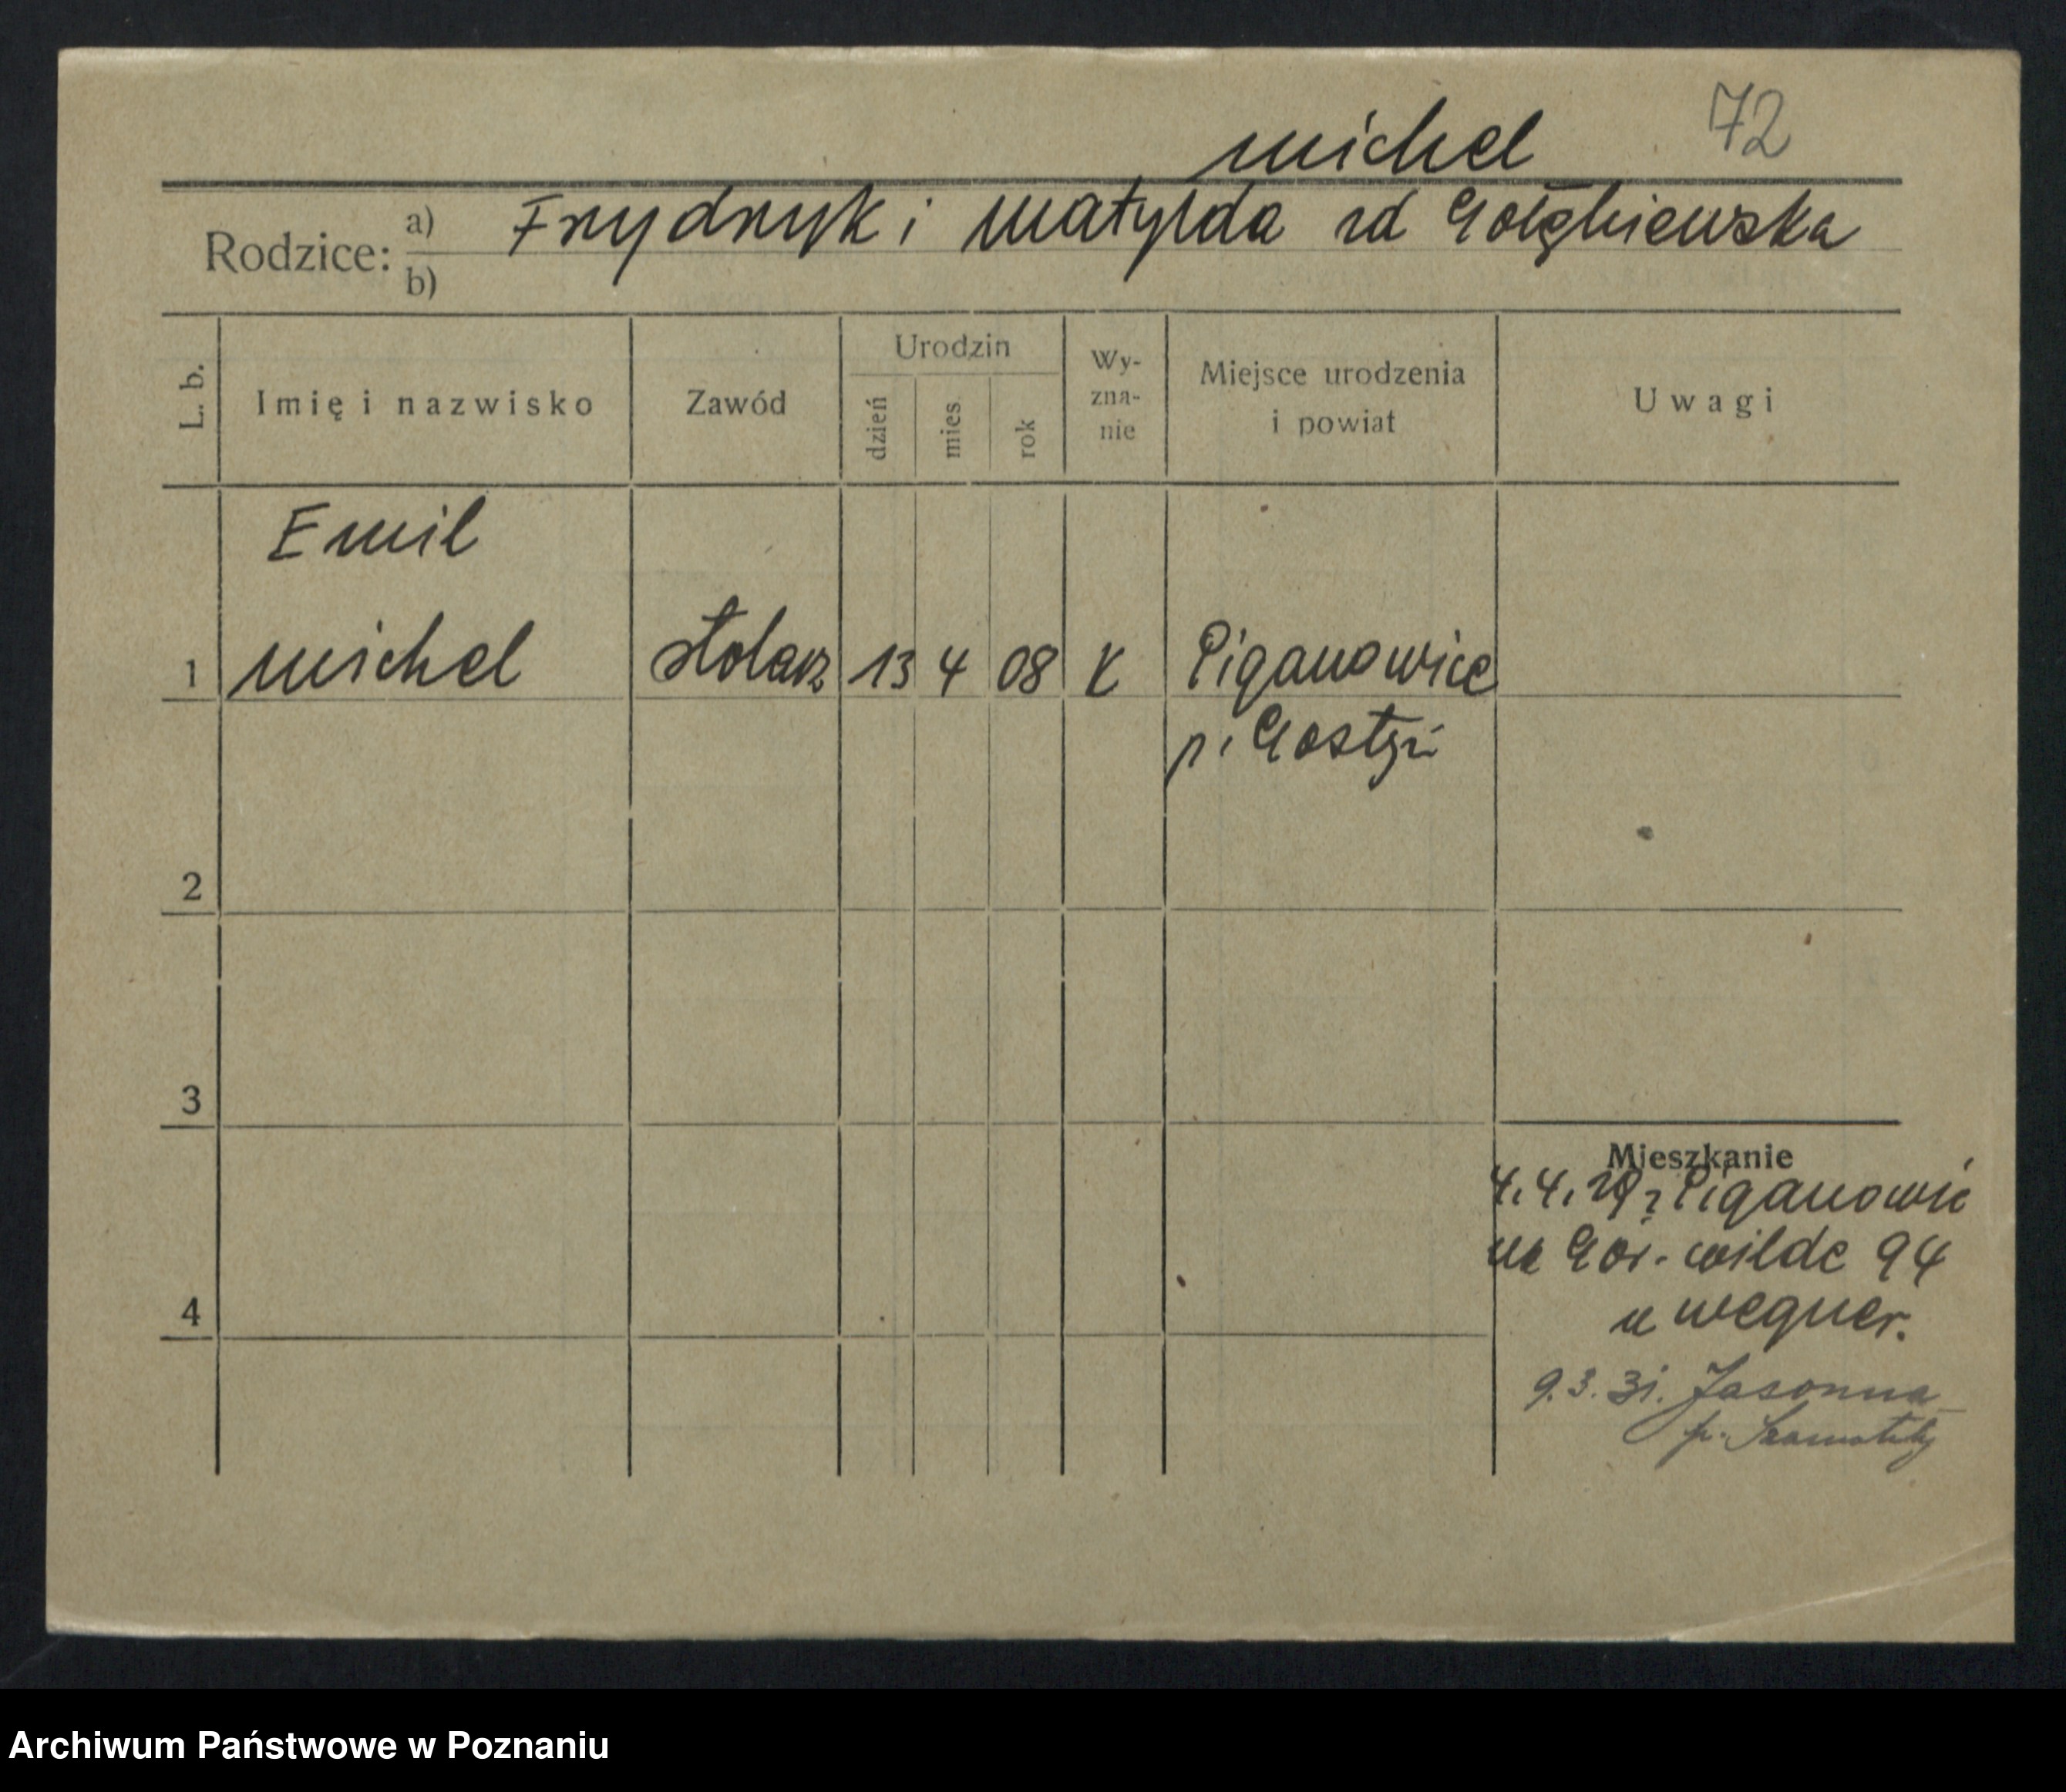 michel 72
Rodzice: a) Frydryk i Matylda rd Gołębiewska
b)
L. b. Imię i nazwisko Zawód Urodzin dzień mies. rok Wy-zna-nie Miejsce urodzenia i powiat Uwagi
Emil
1 michel stolarz 13 4 08 K Piganowice
p. Gostyń
2
3
Mieszkanie
4.4.29 z Piganowic
na Gór. wilde 94
4 u wegner.
9.3.31. Jasonna
p. Szamotuły
Archiwum Państwowe w Poznaniu